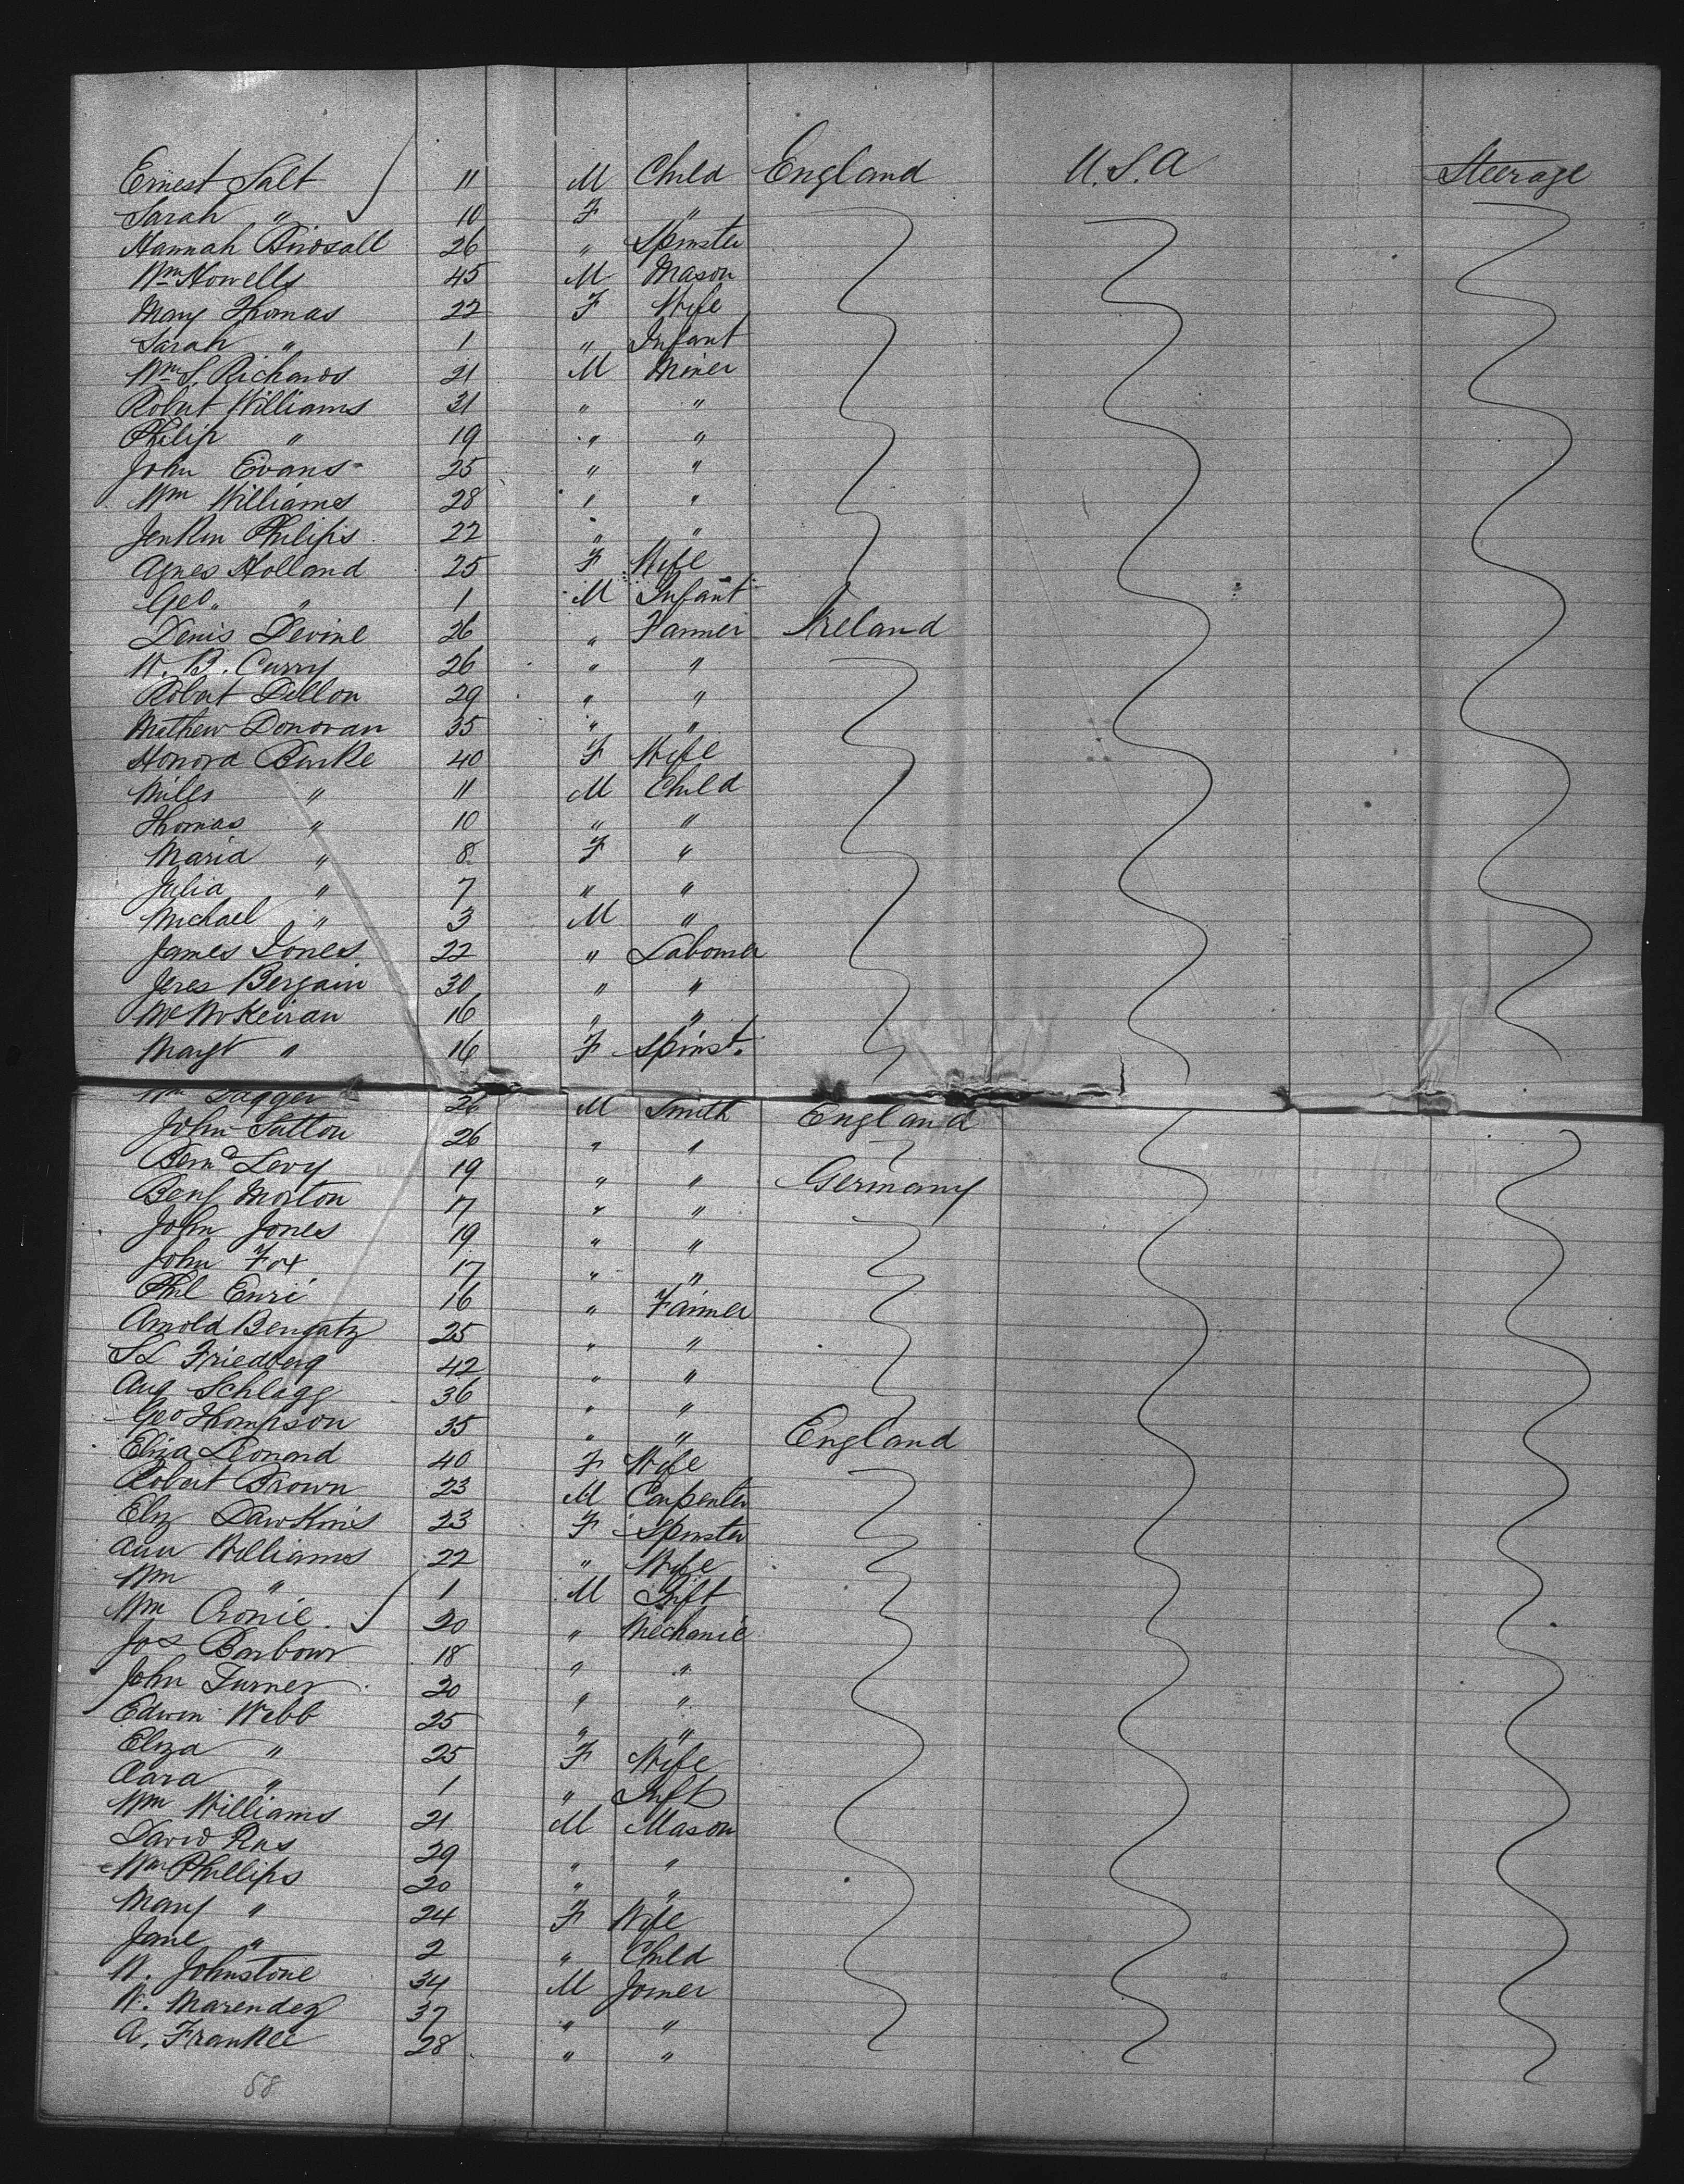 Ernest Salt 11 M Child England U.S.A Steerage
Sarah " 10 F "
Hannah Birdsall 26 " Spinster
Wm Howells 45 M Mason
Mary Thomas 22 F Wife
Sarah " 1 " Infant
Wm S. Richards 21 M Miner
Robert Williams 31 " "
Philip " 19 " "
John Evans 25 " "
Wm Williams 28 " "
Jenkin Philips 22 " "
Agnes Holland 25 F Wife
Geo. " 1 M Infant
Denis Devine 26 " Farmer Ireland
W. B. Curry 26 " "
Robert Dillon 29 " "
Mathew Donovan 35 " "
Honora Burke 40 F Wife
Miles " 11 M Child
Thomas " 10 " "
Maria " 8 F "
Julia " 7 " "
Michael " 3 M "
James Jones 22 " Labourer
Jeres Bergain 30 " "
16 " "
Margt " 16 F Spinst.
Wm Dagger 26 M Smith England
John Sutton 26 " "
Bernd Levy 19 " " Germany
Benj Morton 17 " "
John Jones 19 " "
John Fox 17 " "
Phil Enri 16 " Farmer
Arnold Bengatz 25 " "
Friedberg 42 " "
Aug Schlagg 36 " "
Geo Thompson 35 " " England
Eliza Leonard 40 F Wife
Robert Brown 23 M Carpenter
Eliz Dawkins 23 F Spinster
Ann Williams 22 " Wife
Wm " 1 M Inft
Wm Cronie 20 " Mechanic
Jos Barbour 18 " "
John Turner 20 " "
Edwin Webb 25 " "
Eliza " 25 F Wife
Clara " 1 " Inft
Wm Williams 21 M Mason
David Rus 29 " "
Wm Phillips 20 " "
Mary " 24 F Wife
Jane " 2 " Child
W. Johnstone 34 M Joiner
W. Marendez 37 " "
A. Frankee 28 " "
58